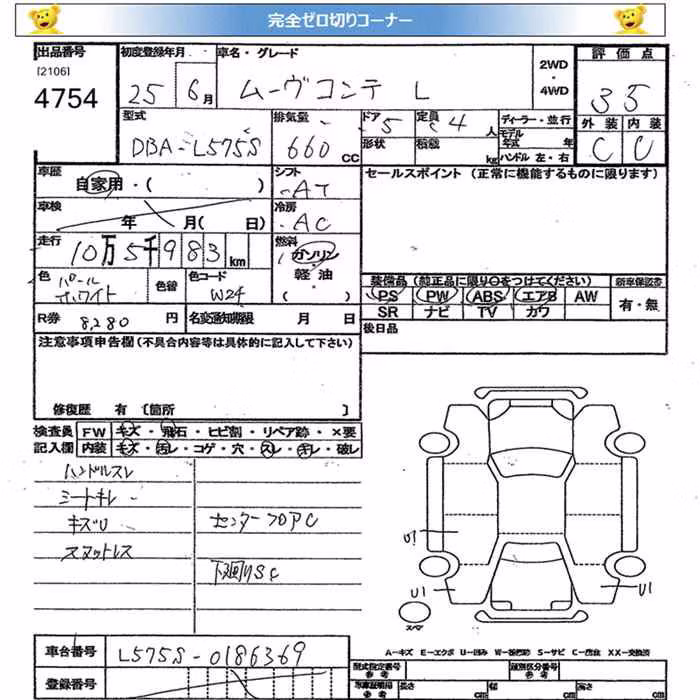 完全ゼロ切りコーナー
出品番号
[2106]
4754
初度登録年月
25 6月
車名・グレード
ムーヴコンテ L
2WD
・
4WD
評価点
3 5
型式
DBA-L575S
排気量
660 CC
ドア 5
形状
定員 4 人
積載 kg
ディーラー・並行
モデル年式 年
ハンドル 左・右
外装 内装
C C
車歴
自家用・( )
シフト
AT
セールスポイント (正常に機能するものに限ります)
車検
年 月( 日)
冷房
AC
走行
10万5千983km
燃料
ガソリン
軽油
( )
色
パール
ホワイト
色替
色コード
W24
装備品 (純正品に限り○をつけてください)
PS PW ABS エアB AW
SR ナビ TV カワ
新車保証書
有・無
R券 8,280 円
名変通知期限 月 日
後日品
注意事項申告欄 (不具合内容等は具体的に記入して下さい)
修復歴 有 [箇所 ]
検査員
記入欄
FW キズ・飛石・ヒビ割・リペア跡・×要
内装 キズ・汚レ・コゲ・穴・スレ・キレ・破レ
ハンドルスレ
シートキレ
キズU
スマットレス
センターフロアC
下廻りSC
U1
U1
U1
スペア
A-キズ E-エクボ U-凹み W-補修跡 S-サビ C-腐蝕 XX-交換済
車台番号
L575S-0186369
登録番号
型式指定番号
参考
類別区分番号
参考
車庫証明用
参考
長さ cm
幅 cm
高さ cm